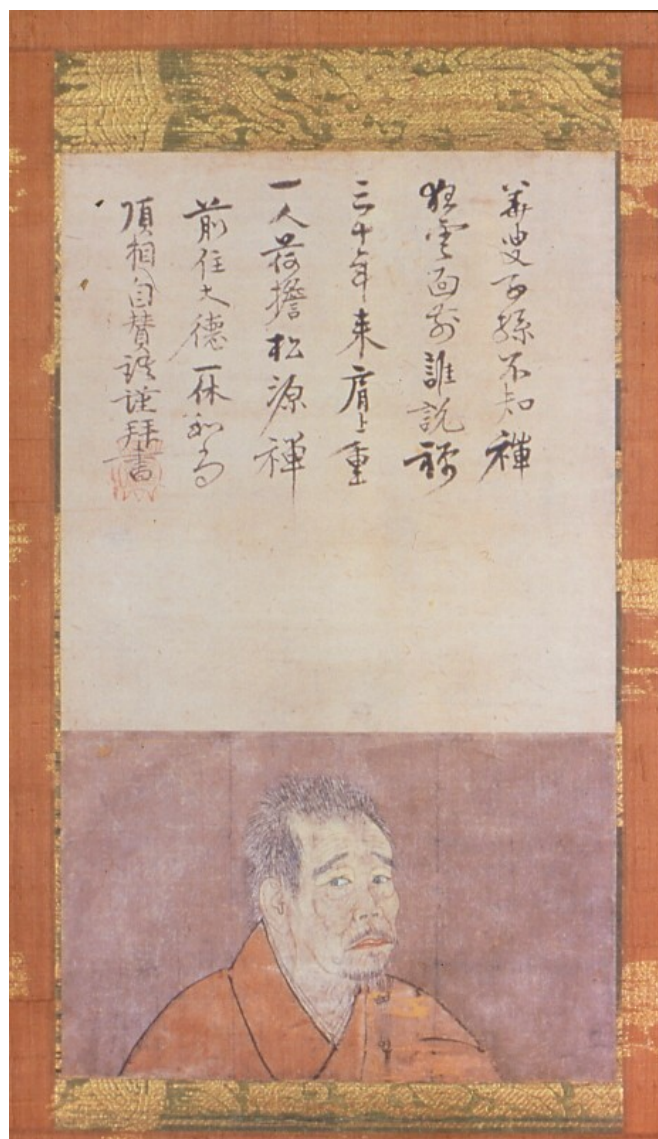 華叟子孫不知禅
狂雲面前誰説禅
三十年来肩上重
一人荷擔松源禅
前住大德一休和尚
頂相自賛語謹拝書